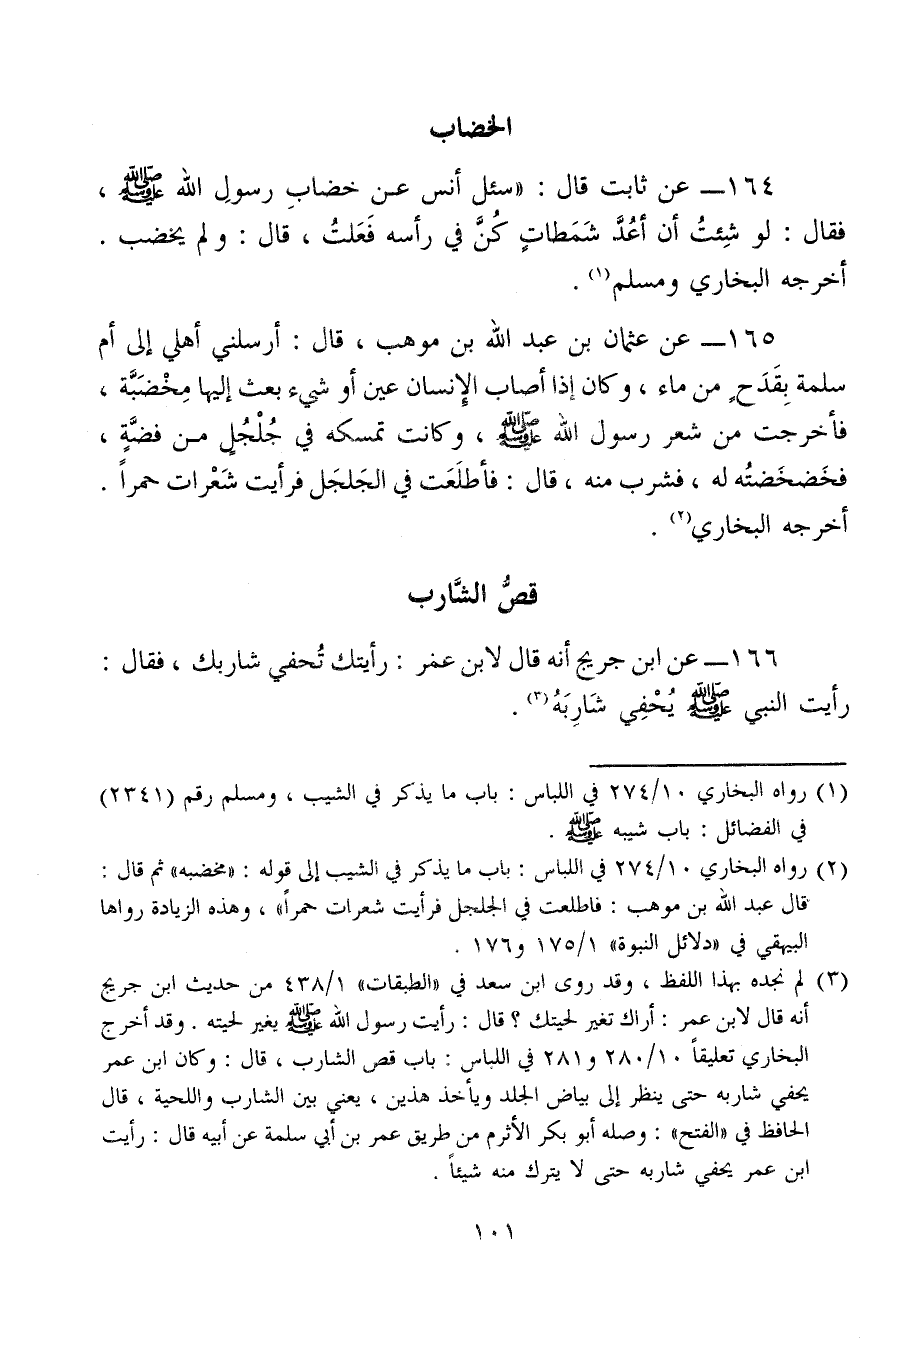 الخضاب
١٦٤ــ عن ثابت قال : «سئل أنس عـن خضابِ رسولِ الله ﷺ ،
فقال : لو شِئتُ أن أعُدَّ شَمَطاتٍ كُنَّ في رأسه فَعَلتُ ، قال : و لم يخضب .
أخرجه البخاري ومسلم(١) .
١٦٥ــ عن عثمان بن عبد الله بن موهب ، قال : أرسلني أهلي إلى أم
سلمة بِقَدَحٍ من ماء ، وكان إذا أصاب الإنسان عين أو شيء بعث إليها مِخْضَبَّة ،
فأخرجت من شعر رسول الله ﷺ ، وكانت تمسكه في جُلْجُلٍ مـن فضَّةٍ ،
فخَضخَضتُه له ، فشرب منه ، قال : فأطلَعَت في الجَلجَل فرأيت شَعْرات حمراً .
أخرجه البخاري(٢) .
قصُّ الشَّارب
١٦٦ــ عن ابن جريج أنه قال لابن عمر : رأيتك تُحفي شاربك ، فقال :
رأيت النبي ﷺ يُحْفِي شَارِبَهُ(٣) .
(١) رواه البخاري ٢٧٤/١٠ في اللباس : باب ما يذكر في الشيب ، ومسلم رقم (٢٣٤١)
في الفضائل : باب شيبه ﷺ .
(٢) رواه البخاري ٢٧٤/١٠ في اللباس : باب ما يذكر في الشيب إلى قوله : «مخضبه» ثم قال :
قال عبد الله بن موهب : فاطلعت في الجلجل فرأيت شعرات حمراً» ، وهذه الزيادة رواها
البيهقي في «دلائل النبوة» ١٧٥/١ و١٧٦ .
(٣) لم نجده بهذا اللفظ ، وقد روى ابن سعد في «الطبقات» ٤٣٨/١ من حديث ابن جريج
أنه قال لابن عمر : أراك تغير لحيتك ؟ قال : رأيت رسول الله ﷺ يغير لحيته . وقد أخرج
البخاري تعليقاً ٢٨٠/١٠ و٢٨١ في اللباس : باب قص الشارب ، قال : وكان ابن عمر
يحفي شاربه حتى ينظر إلى بياض الجلد ويأخذ هذين ، يعني بين الشارب واللحية ، قال
الحافظ في «الفتح» : وصله أبو بكر الأثرم من طريق عمر بن أبي سلمة عن أبيه قال : رأيت
ابن عمر يحفي شاربه حتى لا يترك منه شيئاً .
١٠١